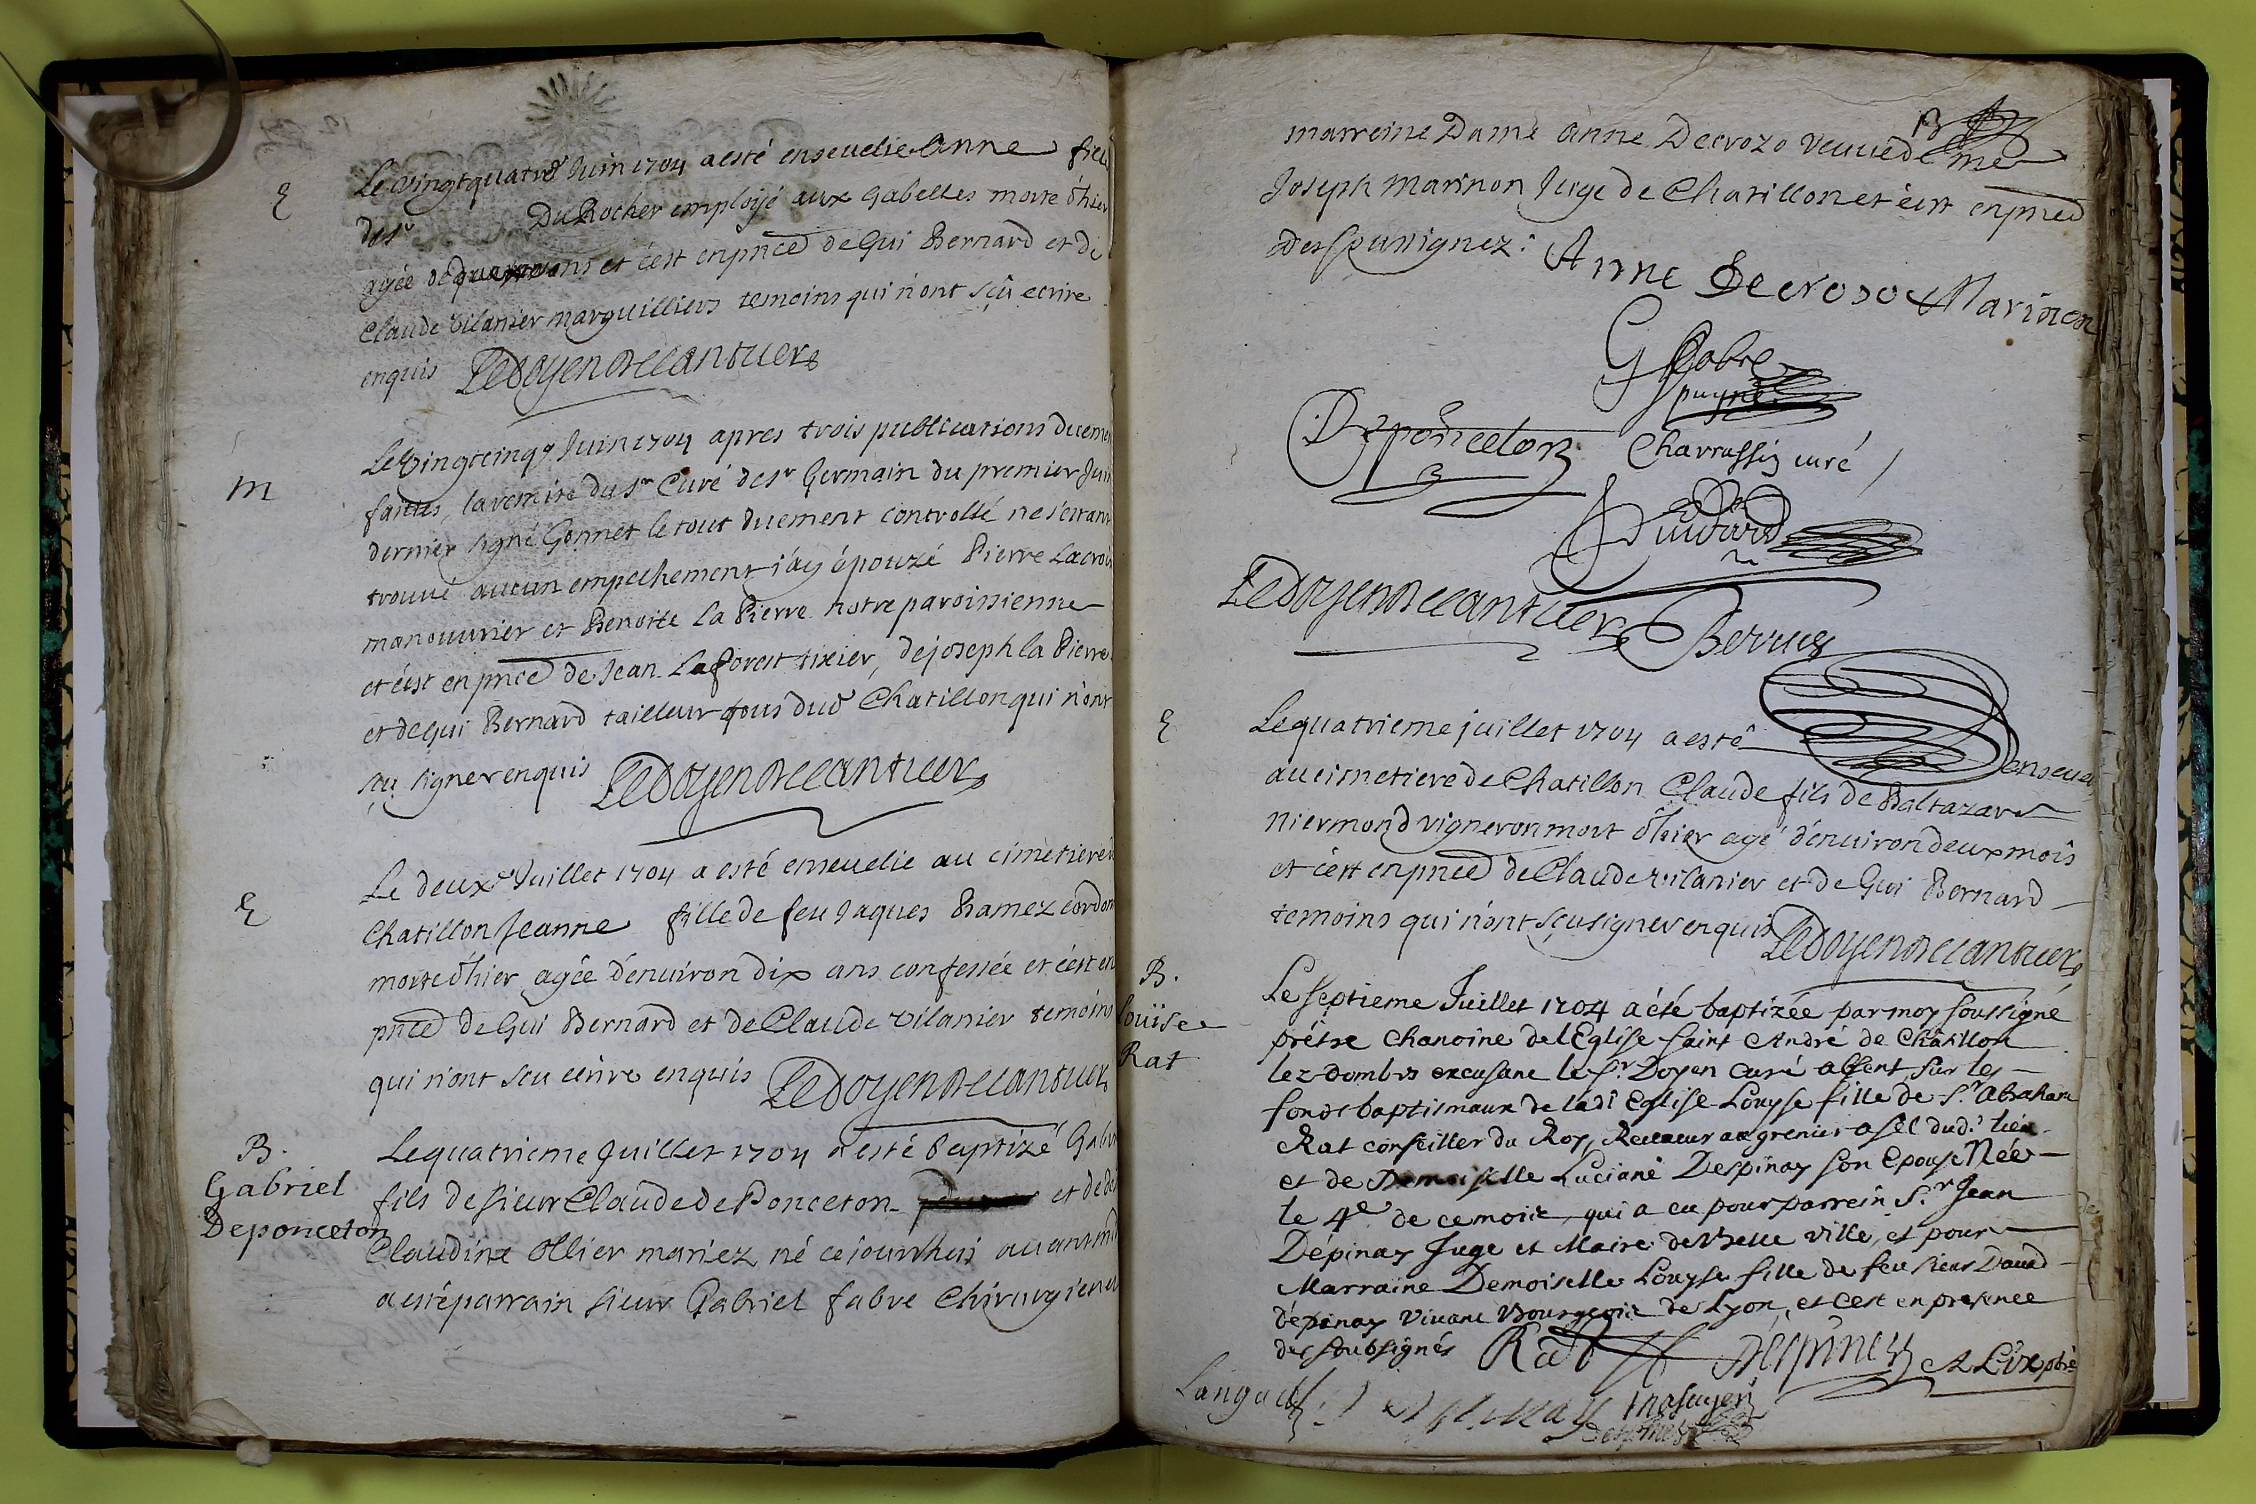 E
Le vingtquatre Juin 1704 a esté enseuelie Anne fille
du sr DuRocher employé aux gabelles morte d'hier
agée de ans et c'est en pnce de Gui Bernard et de
Claude Vilanier marguilliers temoins qui n'ont sçû ecrire
enquis Ledoyen De Cantuer
M
Le vingtcinq Juin 1704 apres trois publications duemen
faittes, la remise du sr Curé de st Germain du premier Juin
dernier signé Gonnet le tout duement controllé ne s'estant
trouué aucun empechement j'ay épouzé Pierre Lacroix
manouurier et Benoite La Pierre notre paroissienne
et c'est en pnce de Jean Laforest tixier, de joseph la Pierre
et de Gui Bernard tailleur tous dud Chatillon qui n'ont
sçu signer enquis Ledoyen De Cantuer
E
Le deuxe Juillet 1704 a esté enseuelie au cimetiere
Chatillon Jeanne fille de feu Jaques Ramez cordon
morte d'hier agée d'enuiron dix ans confessée et c'est en
pnce de Gui Bernard et de Claude Vilanier temoins
qui n'ont sceu ecrire enquis Ledoyen De Cantuer
B.
Gabriel
Deponceton
Le quatrieme Juillet 1704 a esté Baptizé Gabr
fils de sieur Claude de Ponceton et de de
Claudine Ollier mariez né cejourdhui auant mi
a esté parrain sieur Gabriel fabre Chirurgien et
marreine Dame Anne Decrozo veuue de me
Joseph Marinon Juge de Chatillon et c'est en pnce
des soussignez: Anne Decrozo Marinon
G fabre
Deponceton
Charrassin curé
Guidard
Ledoyen De Cantuer
E
Le quatrieme juillet 1704 a esté enseueli
au cimetiere de Chatillon Claude fils de Baltazard
niermond vigneron mort d'hier agé d'enuiron deux mois
et c'est en pnce de Claude vilanier et de Gui Bernard
temoins qui n'ont sçu signer enquis Ledoyen De Cantuer
B.
Loüise
Rat
Le septieme Juillet 1704 a été baptizée par moy soussigné
prêtre Chanoine de l'Eglise saint André de Châtillon
lez dombes excusant le sr Doyen curé absent sur les
fonds baptismaux de ladt Eglise Louyse fille de sr Abraham
Rat conseiller du Roy, Receueur au grenier a sel dud. lieu
et de Demoiselle Luciane Despinay son Epouse Née
le 4e de ce mois, qui a eu pour parrein sr Jean
Dépinay Juge et Maire de Belle ville, et pour
Marraine Demoiselle Louyse fille de feu sieur Dauid
d'épinay viuant Bourgeois de Lyon, et c'est en presence
des soubsignés Rat Despiney